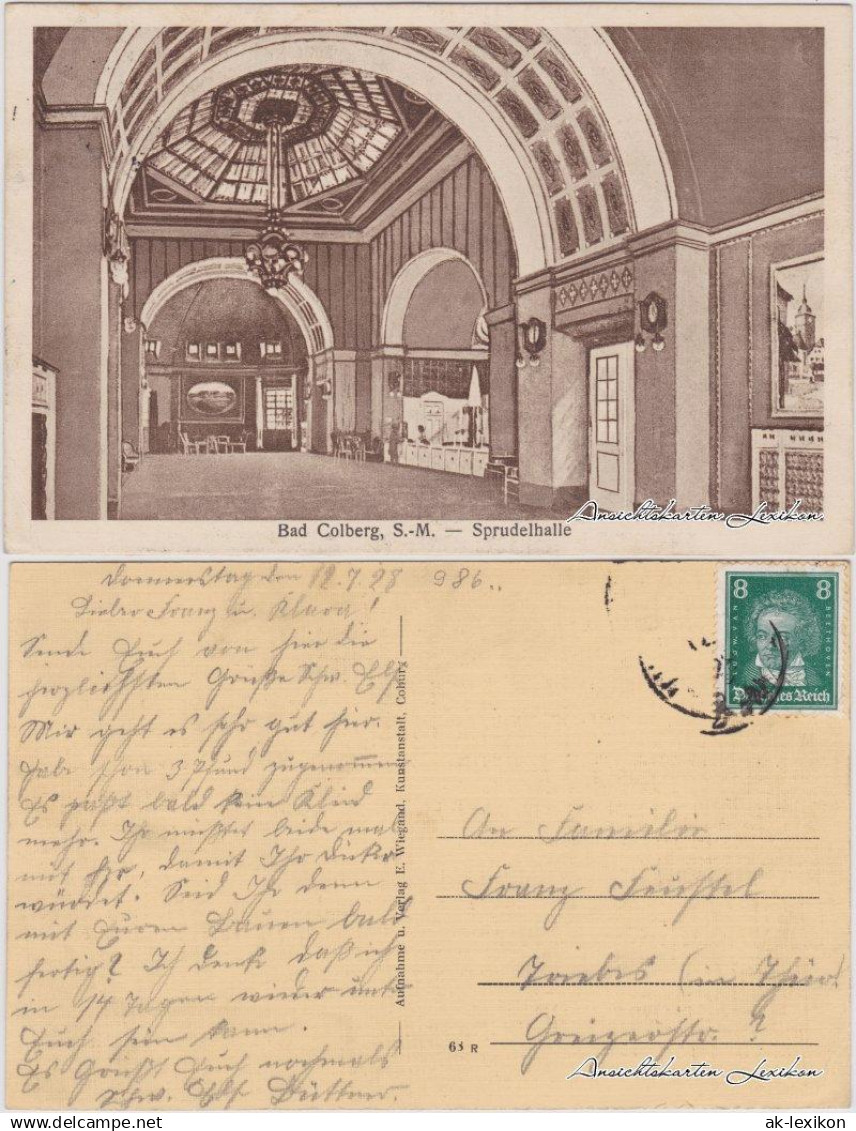 Bad Colberg, S.-M. — Sprudelhalle
Ansichtskarten Lexikon
Donnerstag den 12.7.28 986..
Lieber Franz u. Klara!
Sende Euch von hier die
herzlichsten Grüße Schw. Els
Mir geht es sehr gut hier.
Habe schon 3 Pfund zugenommen
Es paßt bald kein Kleid
mehr. Ihr müßtet beide mal
mit her, damit Ihr dicker
würdet. Seid Ihr denn
mit Euren Bauen bald
fertig? Ich denke daß ich
in 14 Tagen wieder unter
Euch sein kann.
Es Grüßt Euch nochmals
Schw. Els Büttner.
Aufnahme u. Verlag E. Wiegand, Kunstanstalt, Coburg
8 8
LUDW. VAN
BEETHOVEN
Deutsches Reich
An Familie
Franz Feustel
Triebes (in Thür.
Greizerstr. ?
63 R
Ansichtskarten Lexikon
ak-lexikon